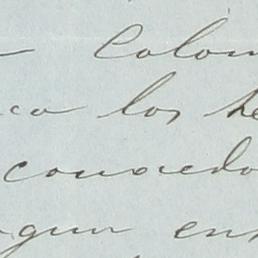 Colom
co los he
conoedo
gun ens